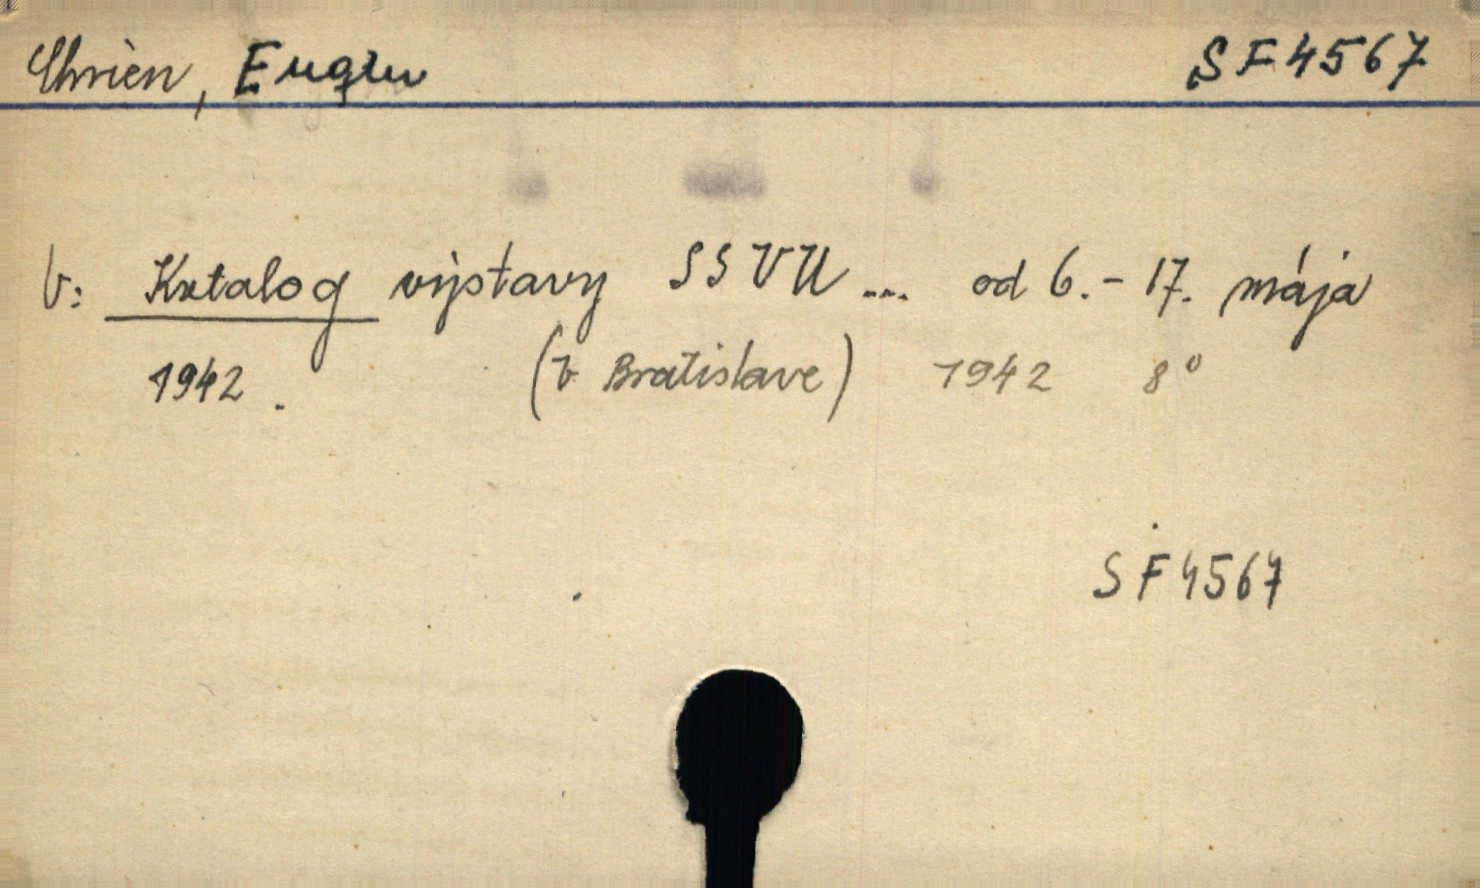 Chrien, Eugen SF4567
V: Katalog výstavy SSVU ... od 6.-17. mája
1942. (V Bratislave) 1942 8°
SF4567